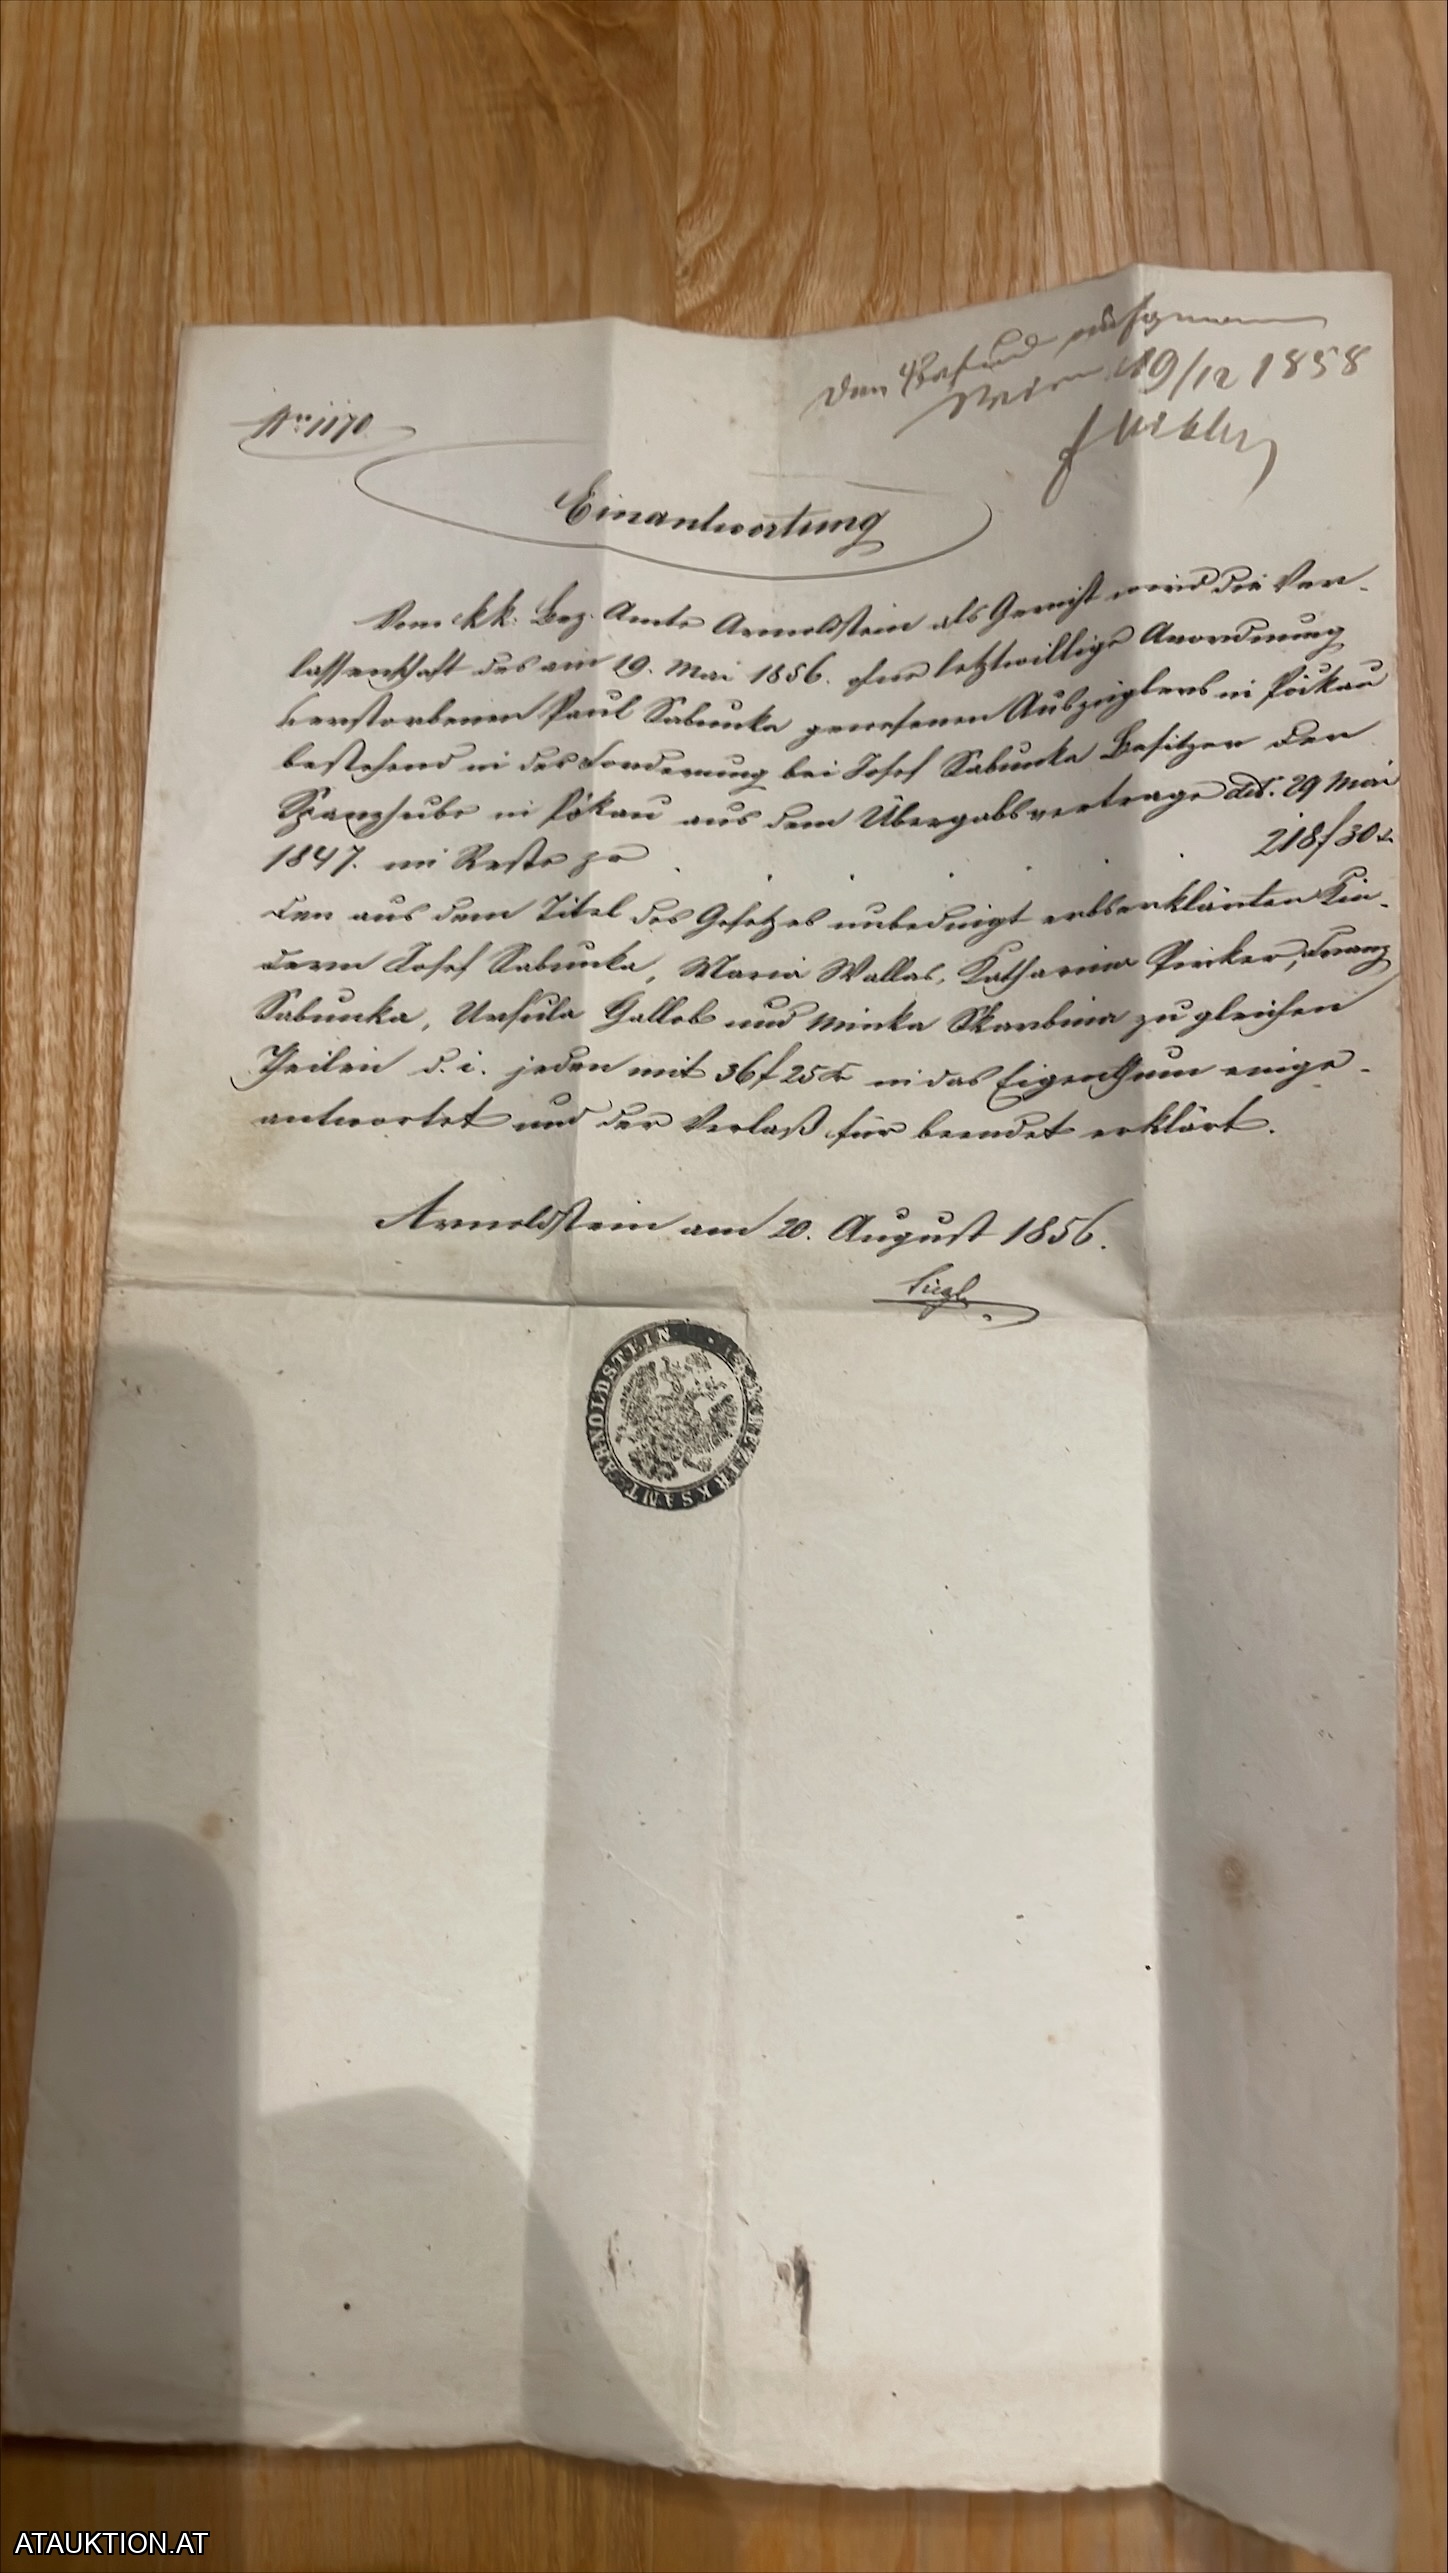 den
Wien 19/12 1858
No. 1170
Einantwortung
Vom kk. Bez. Amte Arnoldstein als Gericht wird die Ver-
lassenschaft des am 19. Mai 1856. ohne letztwillige Anordnung
verstorbenen Paul Sabunka gewesenen Auszüglers in Pökau
bestehend in der Forderung bei Josef Sabunka Besitzer der
hube in Pökau aus dem Übergabsvertrage ddt. 29 Mai
1847. im Reste pr . . . . 218 f 30 x
den aus dem Titel des Gesetzes unbedingt erbserklärten Kin-
dern Josef Sabunka, Maria Wallas, Katharina Pirker, Franz
Sabunka, Ursula Gallob und Minka Skarbina zu gleichen
Theilen d. i. jeden mit 36 f 25 x in das Eigenthum einge-
antwortet und der Verlaß für beendet erklärt.
Arnoldstein am 20. August 1856.
K.K. BEZIRKSAMT ARNOLDSTEIN
ATAUKTION.AT